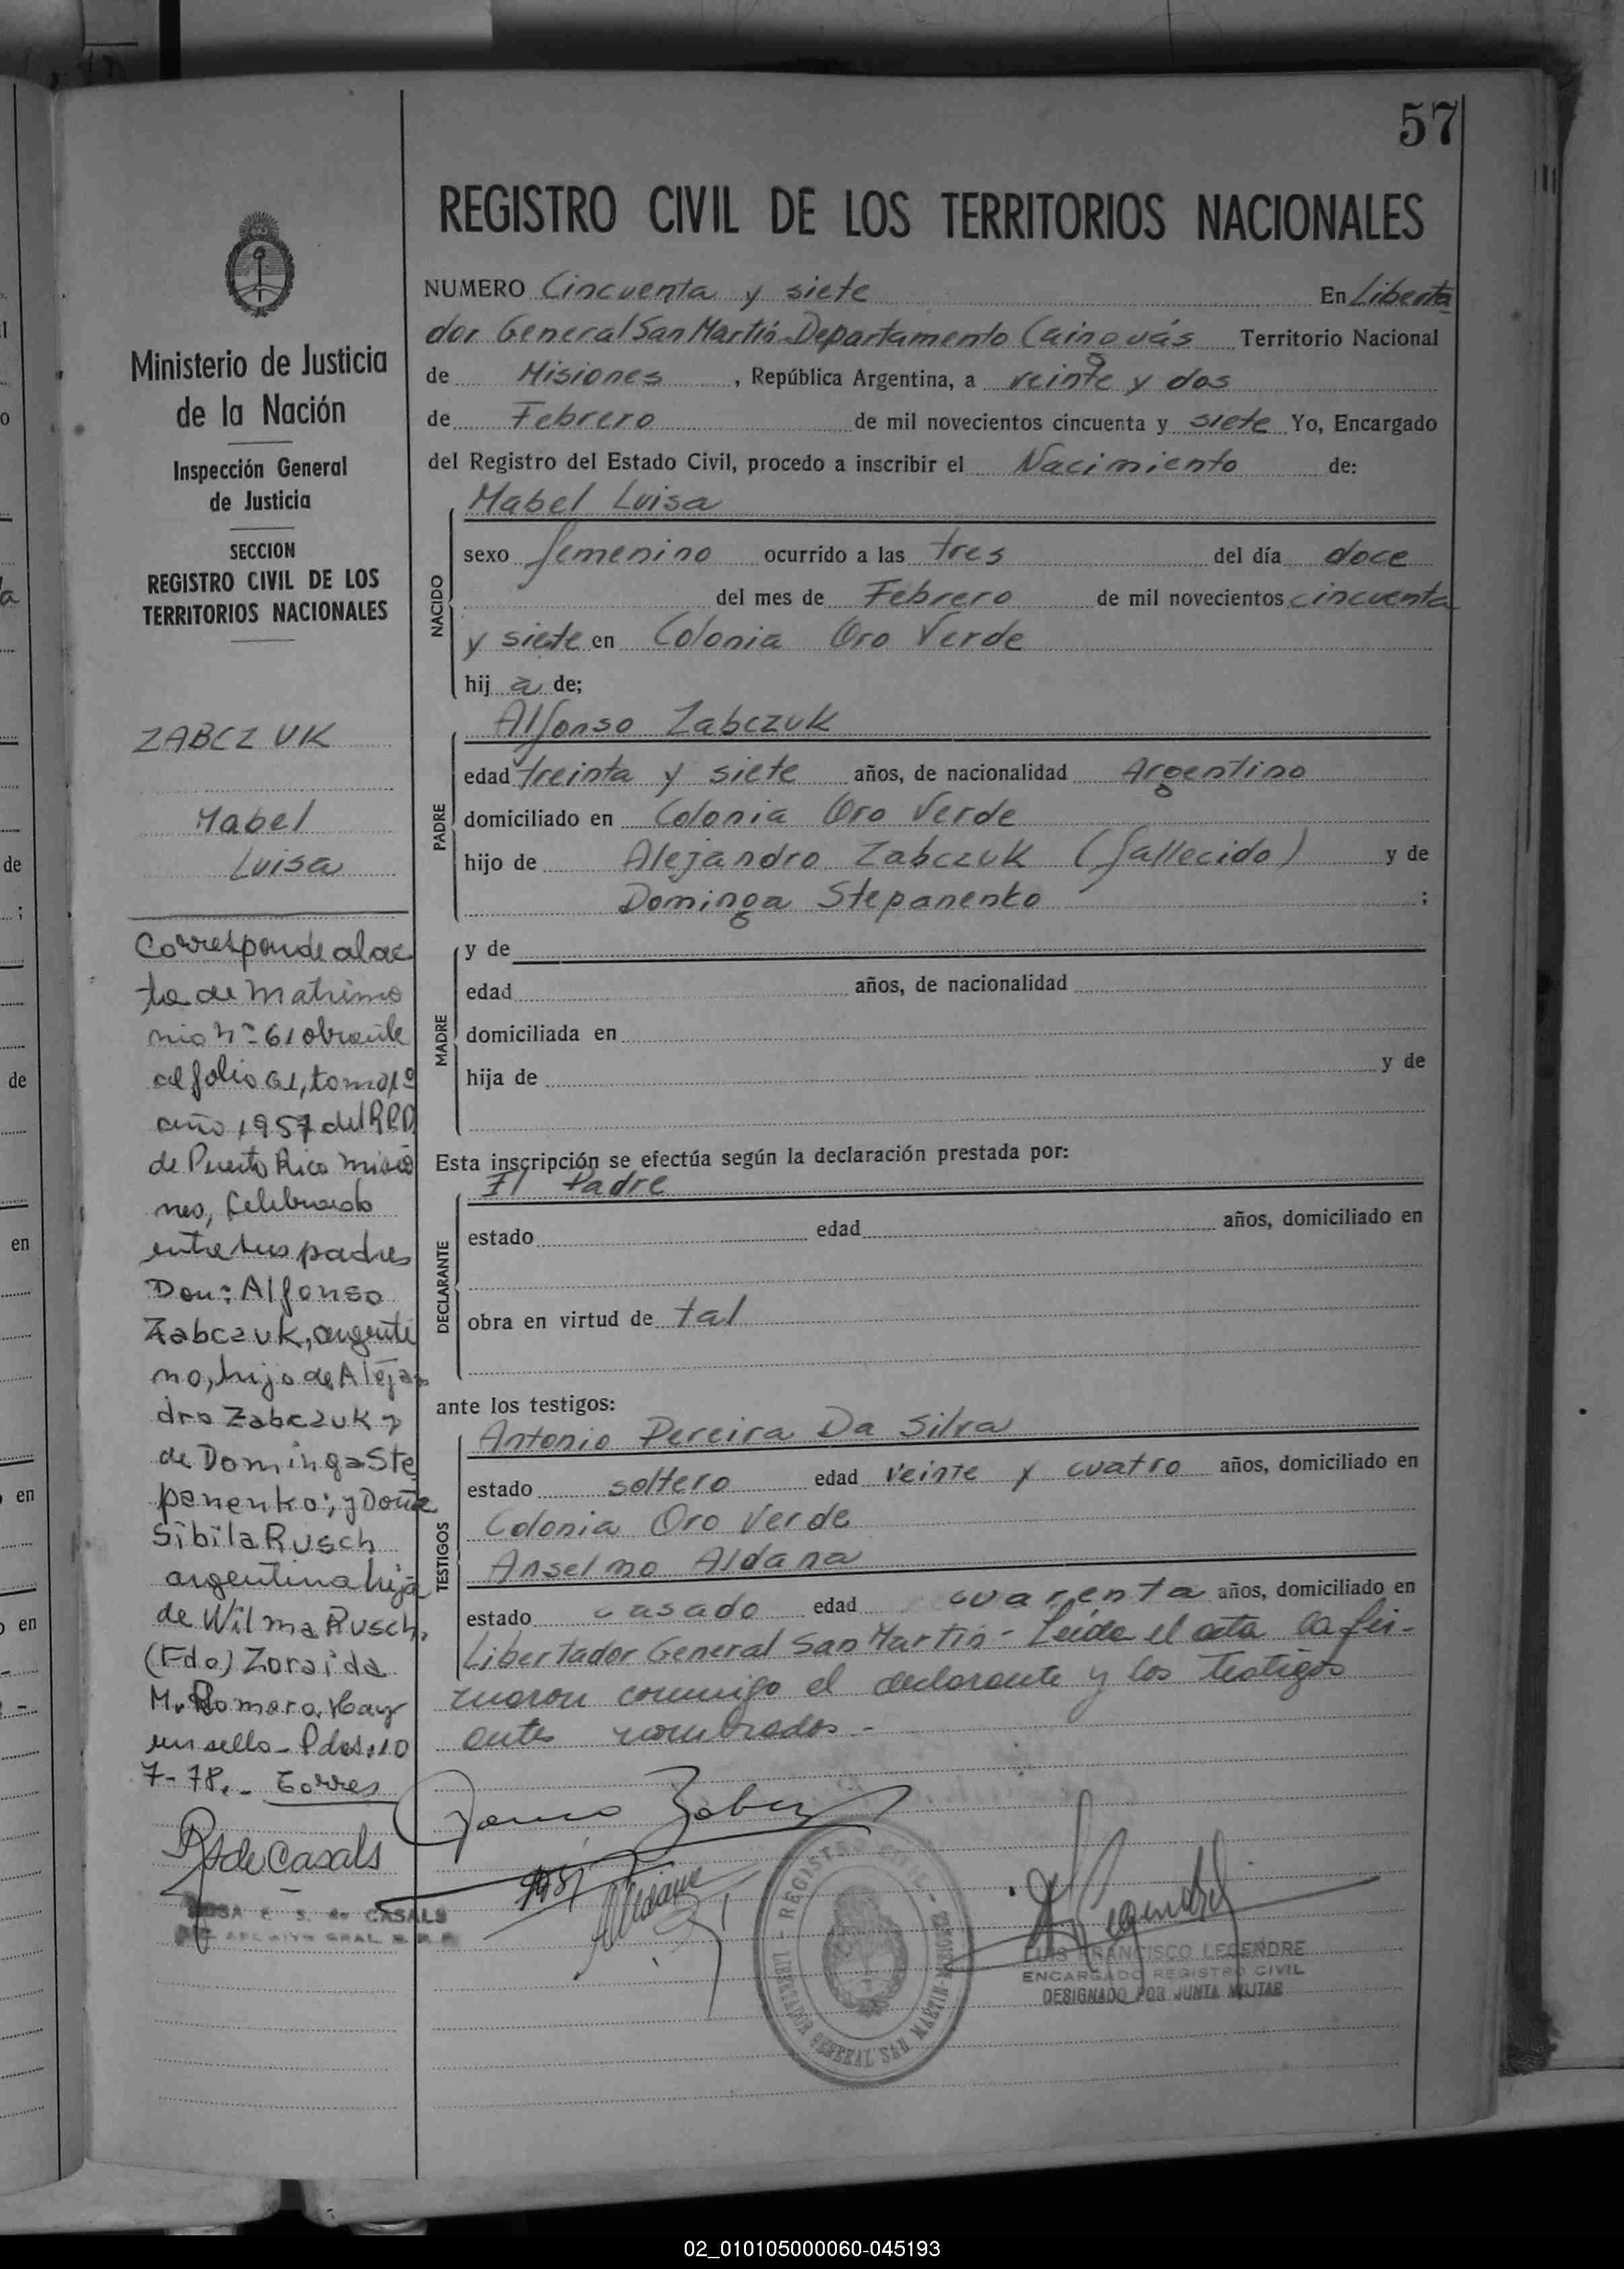 57
REGISTRO CIVIL DE LOS TERRITORIOS NACIONALES
NUMERO Cincuenta y siete En Liberta
dor General San Martín-Departamento Cainguás Territorio Nacional
de Misiones, República Argentina, a veinte y dos
de Febrero de mil novecientos cincuenta y siete Yo, Encargado
del Registro del Estado Civil, procedo a inscribir el Nacimiento de:
NACIDO
Mabel Luisa
sexo femenino ocurrido a las tres del día doce
del mes de Febrero de mil novecientos cincuenta
y siete en Colonia Oro Verde
hij a de;
PADRE
Alfonso Zabczuk
edad treinta y siete años, de nacionalidad Argentino
domiciliado en Colonia Oro Verde
hijo de Alejandro Zabczuk (fallecido) y de
Dominga Stepanenko ;
MADRE
y de
edad años, de nacionalidad
domiciliada en
hija de y de
Esta inscripción se efectúa según la declaración prestada por:
DECLARANTE
El Padre
estado edad años, domiciliado en
obra en virtud de tal
ante los testigos:
TESTIGOS
Antonio Pereira Da Silva
estado soltero edad veinte y cuatro años, domiciliado en
Colonia Oro Verde
Anselmo Aldana
estado casado edad cuarenta años, domiciliado en
Libertador General San Martín - Leída el acta la fir-
maron conmigo el declarante y los testigos
antes nombrados.-
REGISTRO CIVIL
LIBERTADOR GENERAL SAN MARTIN-MISIONES
LUIS FRANCISCO LEGENDRE
ENCARGADO REGISTRO CIVIL
DESIGNADO POR JUNTA MILITAR
Ministerio de Justicia
de la Nación
Inspección General
de Justicia
SECCION
REGISTRO CIVIL DE LOS
TERRITORIOS NACIONALES
ZABCZUK
Mabel
Luisa
Corresponde al ac
ta de matrimo
nio nº 61 obrante
al folio 61, tomo 1º
año 1957 del
de Puerto Rico Misio
nes, Celebrado
entre sus padres
Don: Alfonso
Zabczuk, argenti
no, hijo de Alejan
dro Zabczuk y
de Dominga Ste
panenko; y Doña
Sibila Rusch
argentina hija
de Wilma Rusch.
(Fdo) Zoraida
M. Romero. Hay
un sello - Pdas. 10
7-78.- Torres
R S de Casals
ROSA E. S. de CASALS
ARCHIVO GRAL.
02_010105000060-045193